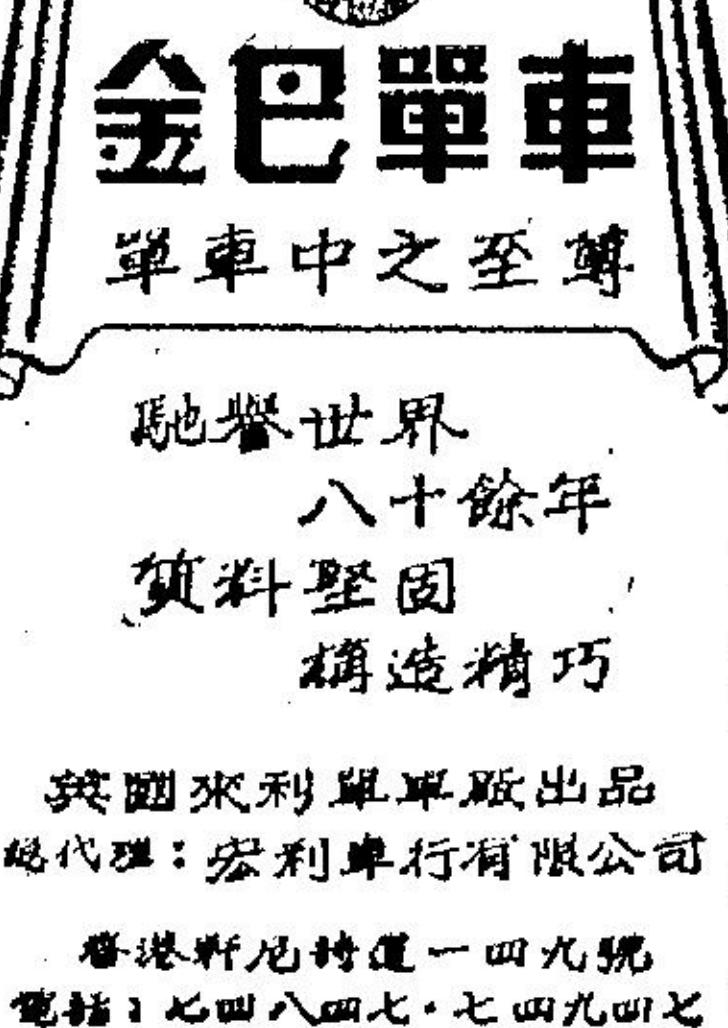 金巴單車
單車中之至尊
馳譽世界
八十餘年
質料堅固
構造精巧
英國來利單車廠出品
總代理：宏利車行有限公司
香港軒尼詩道一四九號
電話：七四八四七·七四九四七